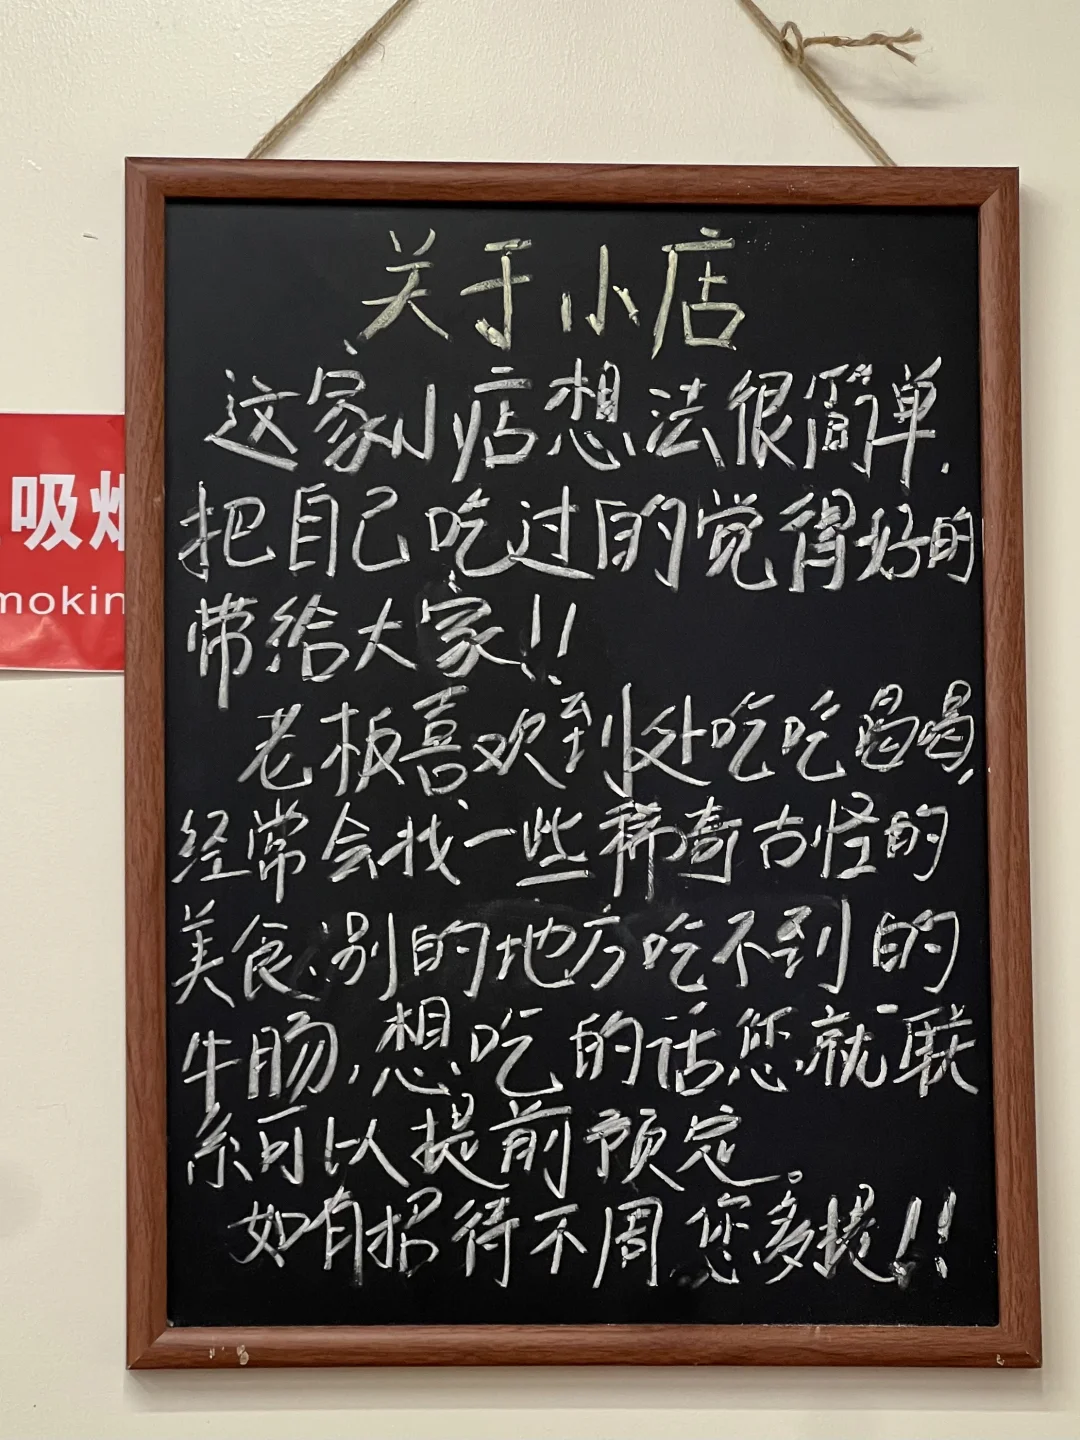 关于小店
这家小店想法很简单.
把自己吃过的觉得好的
带给大家!!
老板喜欢到处吃吃喝喝,
经常会找一些稀奇古怪的
美食.别的地方吃不到的
牛肠,想吃的话您就联
系可以提前预定。
如有招待不周您多提!!
吸烟
mokin